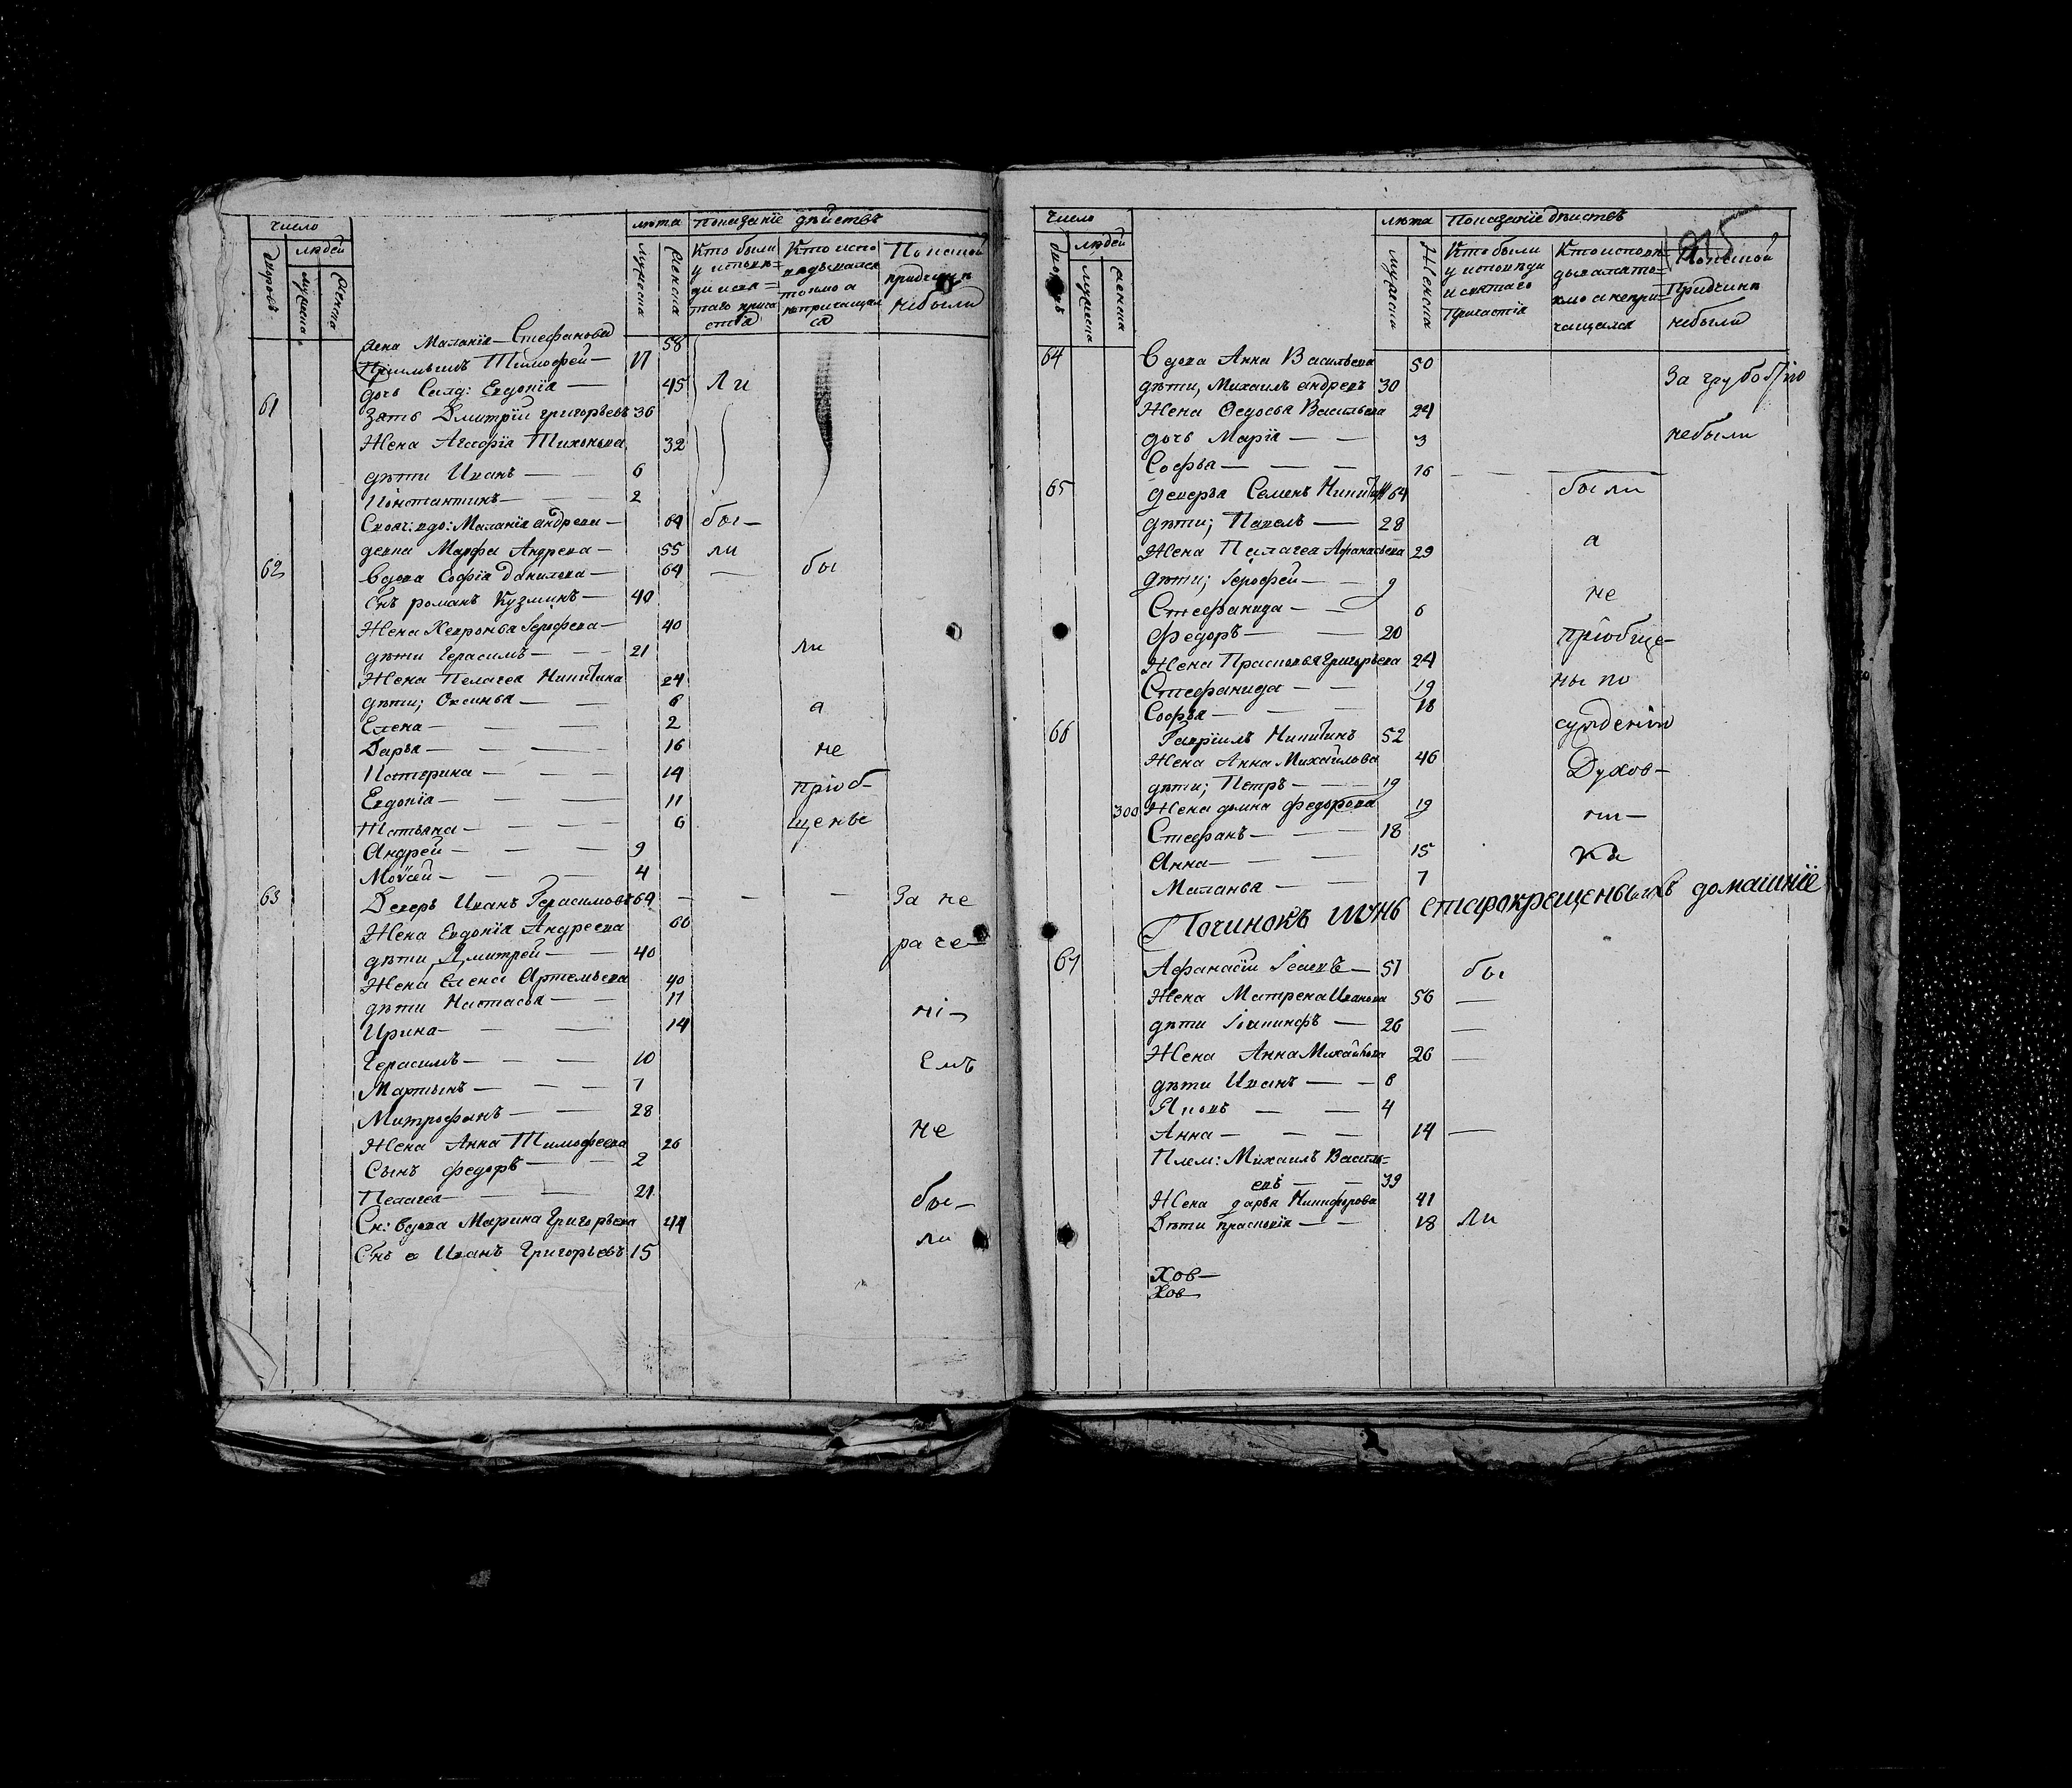 число
людей
лѣта
Показанїе дѣйствъ
дворовъ
мужеска
женска
мужеска
женска
Кто были
у исповѣ=
ди и свя=
таго прича
стїя
Кто испо
ведывался
токмо а
непричащал
ся
По какой
придчинѣ
небыли
жена Маланїя — Стефанова 58
Приемышъ Тимофей — 17
дочь Салд: Евдокїя — 45 Ли
61 Зять Дмитрїй григорьевъ 36
Жена Агафїя Тихонова 32
дѣти Иванъ — — 6
Константинъ — — 2
вдо: Маланїя андреева — 64 бы —
девка Марфа Андреева — 55 ли
62 Вдова Софїя Данилова — 64 — бы
Снъ романъ Кузминъ — 40
Жена Хевронья Ерофеева — 40
дѣти Герасимъ — — 21 ли
Жена Пелагея Никитина 24
дѣти; Оксинья — — 6 а
Елена — — 2
Дарья — — — 16 не
Катерина — — — 14
Евдокїя — — — 11 прїоб
Татьяна — — — 6 щены
Андрей — — — 9
Моѵсей — — — 4
63 Деверь Иванъ Герасимовъ 64 — — — За не
Жена Евдокїя Андреева 60
раче —
дѣти Дмитрей — — 40
Жена Елена Артемьева 40
дѣти Настасья — — 17
нї —
Ирина — — — 14
Герасимъ — — — 10 емъ
Мартынъ — — — 7
Митрофанъ — — 28
не
Жена Анна Тимофеева 26
Сынъ федоръ — — 2
Пелагея — — 21
бы —
Сн: вдова Марина Григорьева 44
ли
Снъ ея Иванъ Григорьевъ 15
число
людей
лѣта
Показанїе дѣйствъ
мужеска
женска
мужеска
женска
Кто были
у исповѣди
и святаго
Причастїя
Кто исповѣ=
дывался то=
кмо а непри=
чащался
По какой
Придчинѣ
небыли
64 Вдова Анна Васильева 50
За грубостїю
дѣти, Михаилъ андреевъ 30
Жена Федосья Васильева 24
небыли
дочь Марїя — — 3
Софья — — — 16 — —
65 деверья Семенъ Никитинъ 64 были
дѣти; Павелъ — 28
а
Жена Пелагея Афанасьева 29
дѣти; Ерофей — — 9
не
Стефанида — — 6
Федоръ — — 20 прїобще —
Жена Прасковья Григорьева 24
Стефанида — — 19 ны по
Софья — — — 18
сужденїю
66 Гаврїилъ Никитинъ 52
Жена Анна Михайлова 46
Духов —
дѣти; Петръ — — 19
300 Жена домна федорова 19
ни —
Стефанъ — — 18
Анна — — — 15 ка
Маланья — — 7
Починокъ старокрещеныхъ домашнїе
67 Афанасїй Исаевъ — 57 бы
Жена Матрена Иванова 56 —
дѣти — 26 —
Жена Анна Михайлова 26 —
дѣти Иванъ — — 6
Яковъ — — 4
Анна — — — 14 —
Плем: Михаилъ Василь=
евъ — — 39
Жена дарья Никифорова 41
Дѣти прасковїя — — 18 ли
Хов —
Хов —